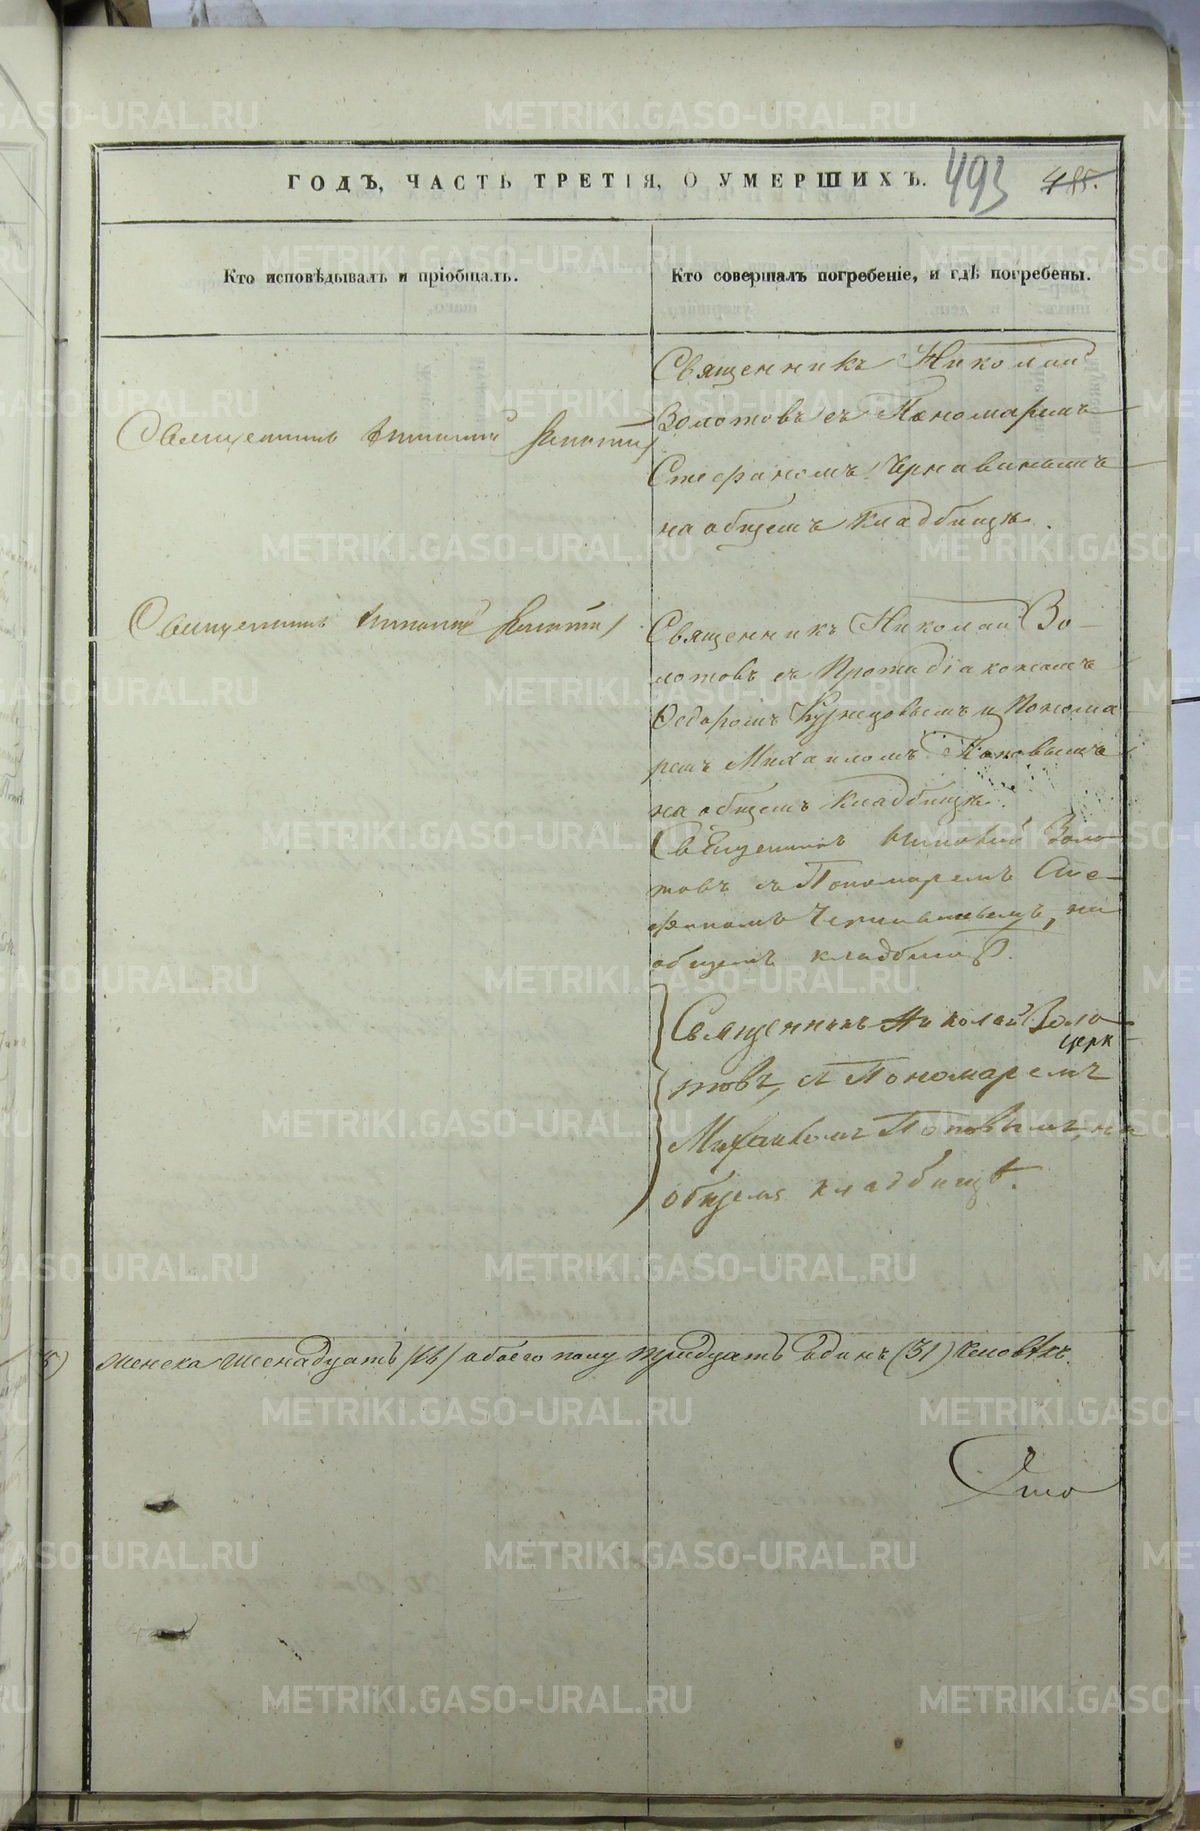 ГОДЪ, ЧАСТЬ ТРЕТІЯ, О УМЕРШИХЪ.
493 485.
Кто исповѣдывалъ и пріобщалъ.
Кто совершалъ погребеніе, и гдѣ погребены.
Священникъ Николай
Золотовъ съ Пономаремъ
Стефаномъ Чернавинымъ
на общемъ кладбищѣ.
Священникъ Николай Золотовъ
Священникъ Николай Золотовъ
Священникъ Николай Зо-
лотовъ съ Протодіакономъ
Ѳедоромъ Кузнецовымъ и Понома
ремъ Михаиломъ Поповымъ
на общемъ кладбищѣ.
Священникъ Николай Золо-
товъ съ Пономаремъ Сте-
фаномъ Чернавинымъ, на
общемъ кладбищѣ.
Священникъ Николай Золо
товъ, съ Пономаремъ
Михаиломъ Поповымъ, на
общемъ кладбищѣ.
женска шеснадцать /16/ обоего полу тридцать одинъ (31) человѣкъ.
METRIKI.GASO-URAL.RU